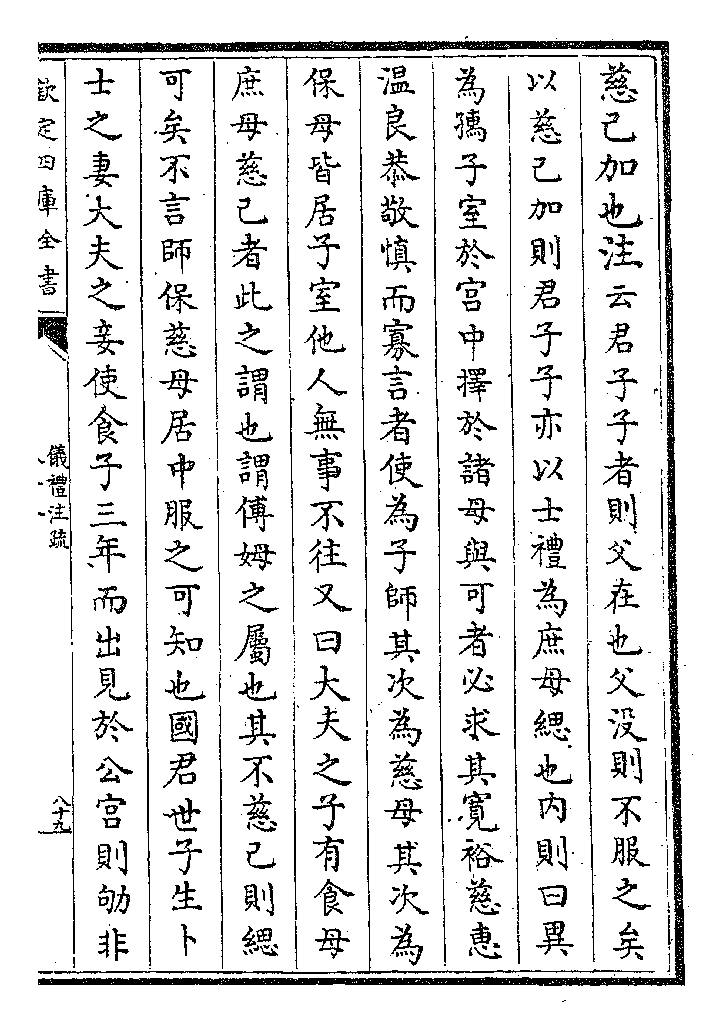 慈己加也注云君子子者則父在也父没則不服之矣
以慈己加則君子子亦以士禮為庶母緦也内則曰異
為孺子室於宫中擇於諸母與可者必求其寛裕慈惠
温良恭敬慎而寡言者使為子師其次為慈母其次為
保母皆居子室他人無事不往又曰大夫之子有食母
庶母慈己者此之謂也謂傅姆之屬也其不慈己則緦
可矣不言師保慈母居中服之可知也國君世子生卜
士之妻大夫之妾使食子三年而出見於公宫則劬非
欽定四庫全書
儀禮注疏
八十九